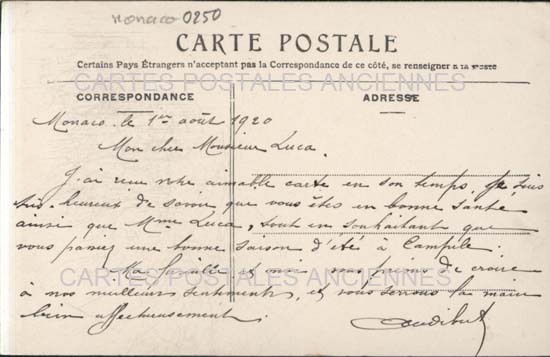 Monaco 0250
CARTE POSTALE
Certains Pays Étrangers n'acceptant pas la Correspondance de ce côté, se renseigner à la Poste
CARTES POSTALES ANCIENNES
CORRESPONDANCE ADRESSE
Monaco, le 1er août 1920
Mon cher Monsieur Luca.
J'ai reçu votre aimable carte en son temps, je suis
très heureux de savoir que vous êtes en bonne santé
ainsi que Mme Luca, tout en souhaitant que
vous passiez une bonne saison d'été à Campile.
Ma famille et moi vous prions de croire
à nos meilleurs sentiments, et vous serrons la main
CARTES POSTALES ANCIENNES
bien affectueusement.